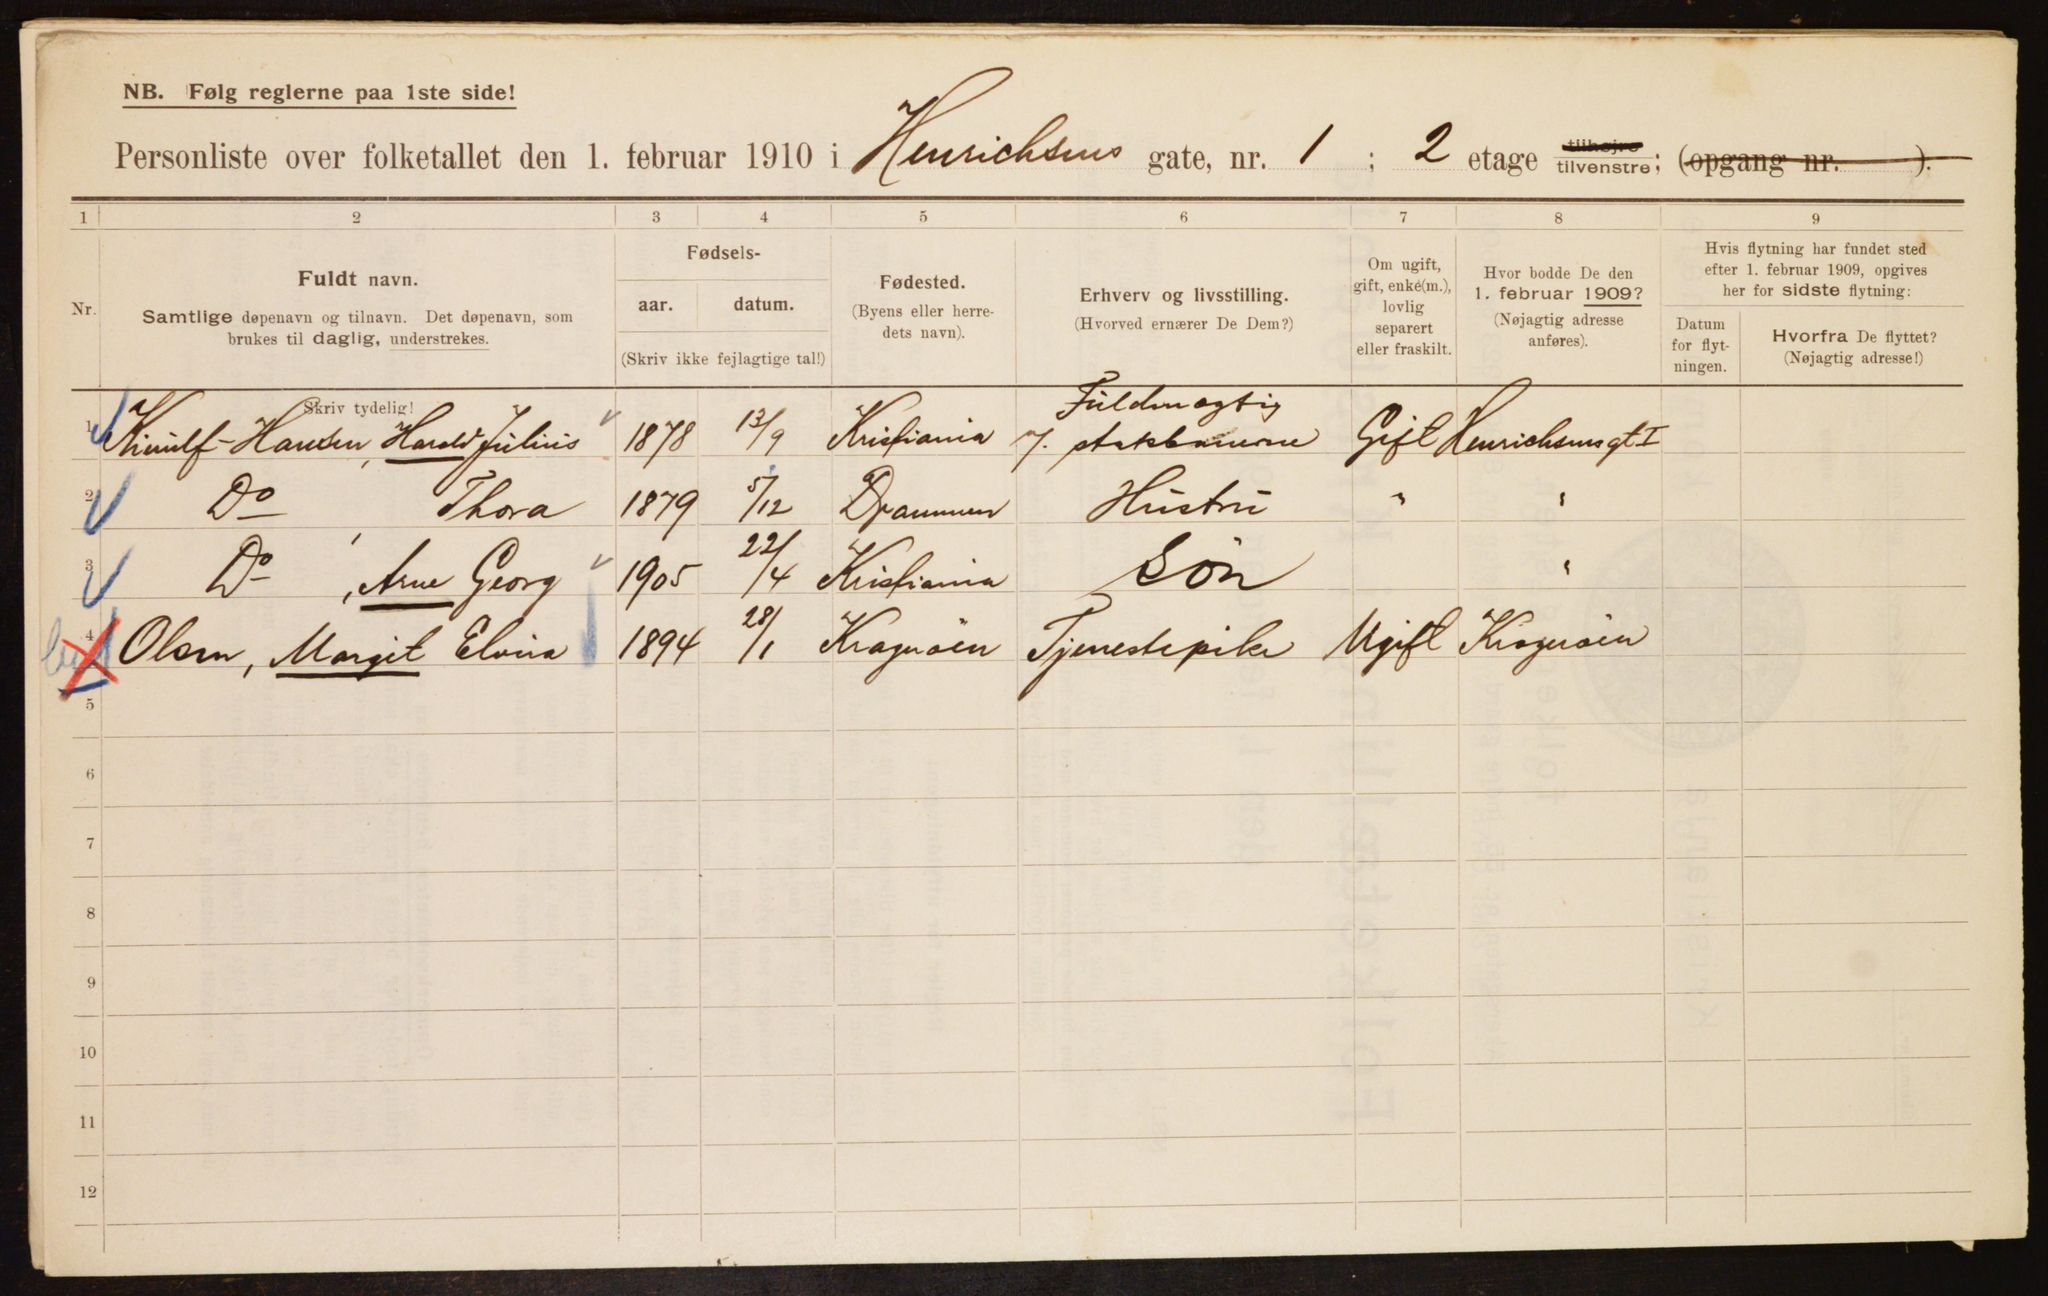 NB. Følg reglerne paa 1ste side!
Personliste over folketallet den 1. februar 1910 i Henrichsens gate, nr. 1 ; 2 etage tilhøjre tilvenstre; (opgang nr. ).
1 2 3 4 5 6 7 8 9
Nr.
Fuldt navn.
Samtlige døpenavn og tilnavn. Det døpenavn, som
brukes til daglig, understrekes.
Skriv tydelig!
Fødsels-
aar. datum.
(Skriv ikke fejlagtige tal!)
Fødested.
(Byens eller herre-
dets navn).
Erhverv og livsstilling.
(Hvorved ernærer De Dem?)
Om ugift,
gift, enke(m.),
lovlig
separert
eller fraskilt.
Hvor bodde De den
1. februar 1909?
(Nøjagtig adresse
anføres).
Hvis flytning har fundet sted
efter 1. februar 1909, opgives
her for sidste flytning:
Datum
for flyt-
ningen.
Hvorfra De flyttet?
(Nøjagtig adresse!)
1 Hansen, Harald Julius 1878 13/9 Kristiania Fuldmægtig v. statsbanerne Gift Henrichsensgt. 1
2 Do Thora 1879 5/12 Drammen Hustru " "
3 Do, Arne Georg 1905 22/4 Kristiania Søn "
4 Olsen, Margit Elvira 1894 28/1 Kragerøen Tjenestepike Ugift Kragerøen
5
6
7
8
9
10
11
12